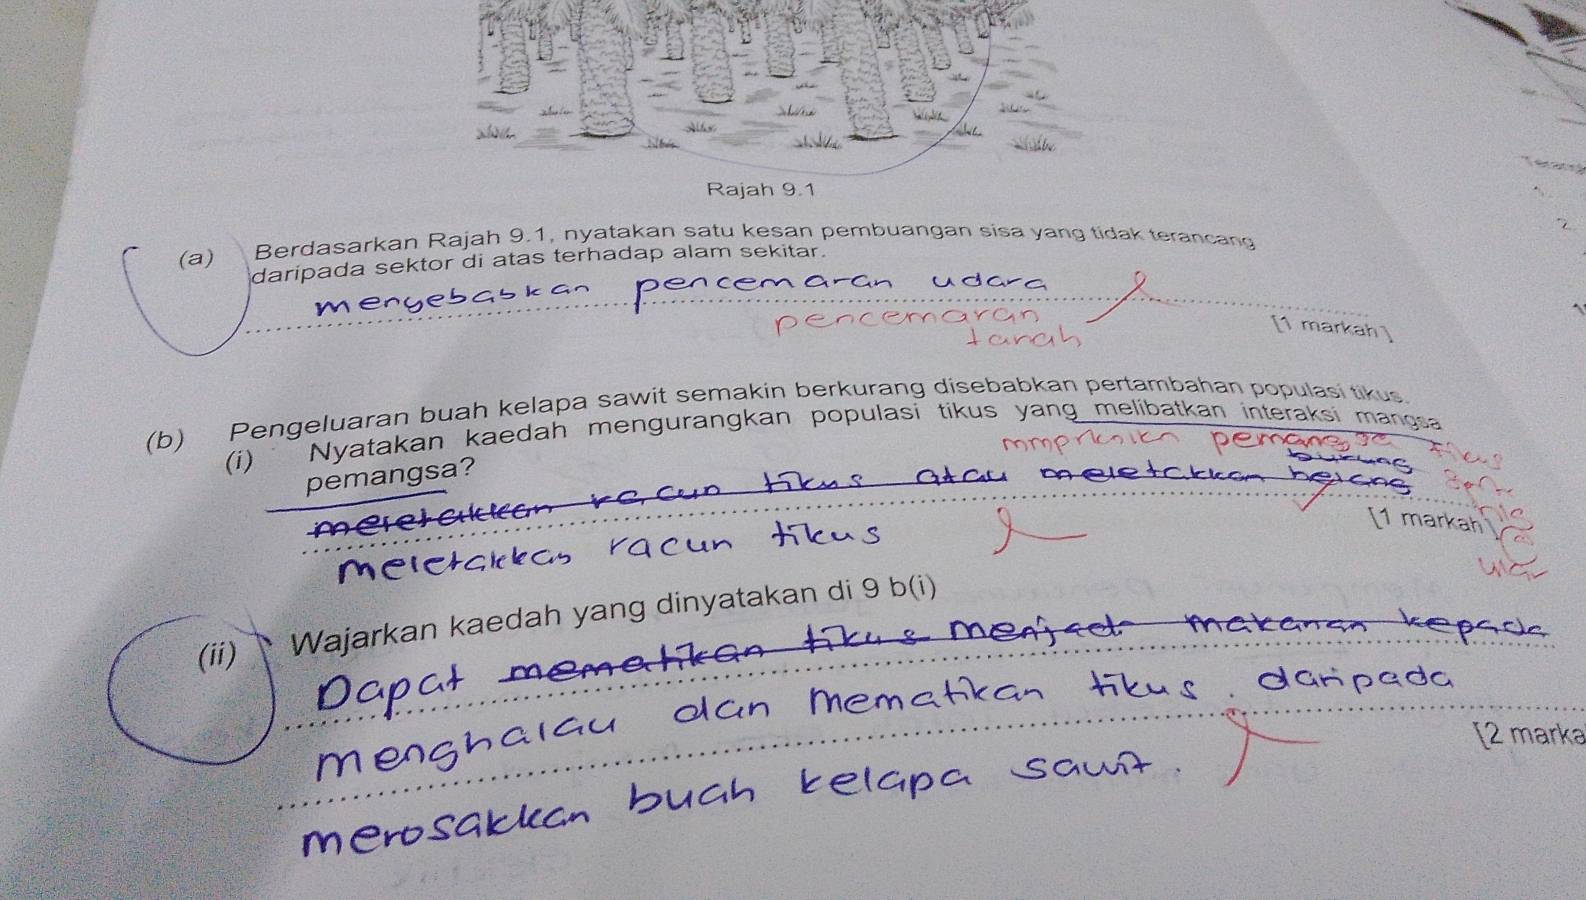 Rajah 9.1
(a) Berdasarkan Rajah 9.1, nyatakan satu kesan pembuangan sisa yang tidak terancang
daripada sektor di atas terhadap alam sekitar.
menyebabkan pencemaran udara
pencemaran
tanah
[1 markah]
(b) Pengeluaran buah kelapa sawit semakin berkurang disebabkan pertambahan populasi tikus.
(i) Nyatakan kaedah mengurangkan populasi tikus yang melibatkan interaksi mangsa
pemangsa?
pemangsa tikus
burung
meletakkan racun tikus atau meletakkan helang
[1 markah]
meletakkan racun tikus
(ii) Wajarkan kaedah yang dinyatakan di 9 b(i)
Dapat mematikan tikus menjadi makanan kepada
menghalau dan mematikan tikus. daripada
[2 marka
merosakkan buah kelapa sawit.
2.